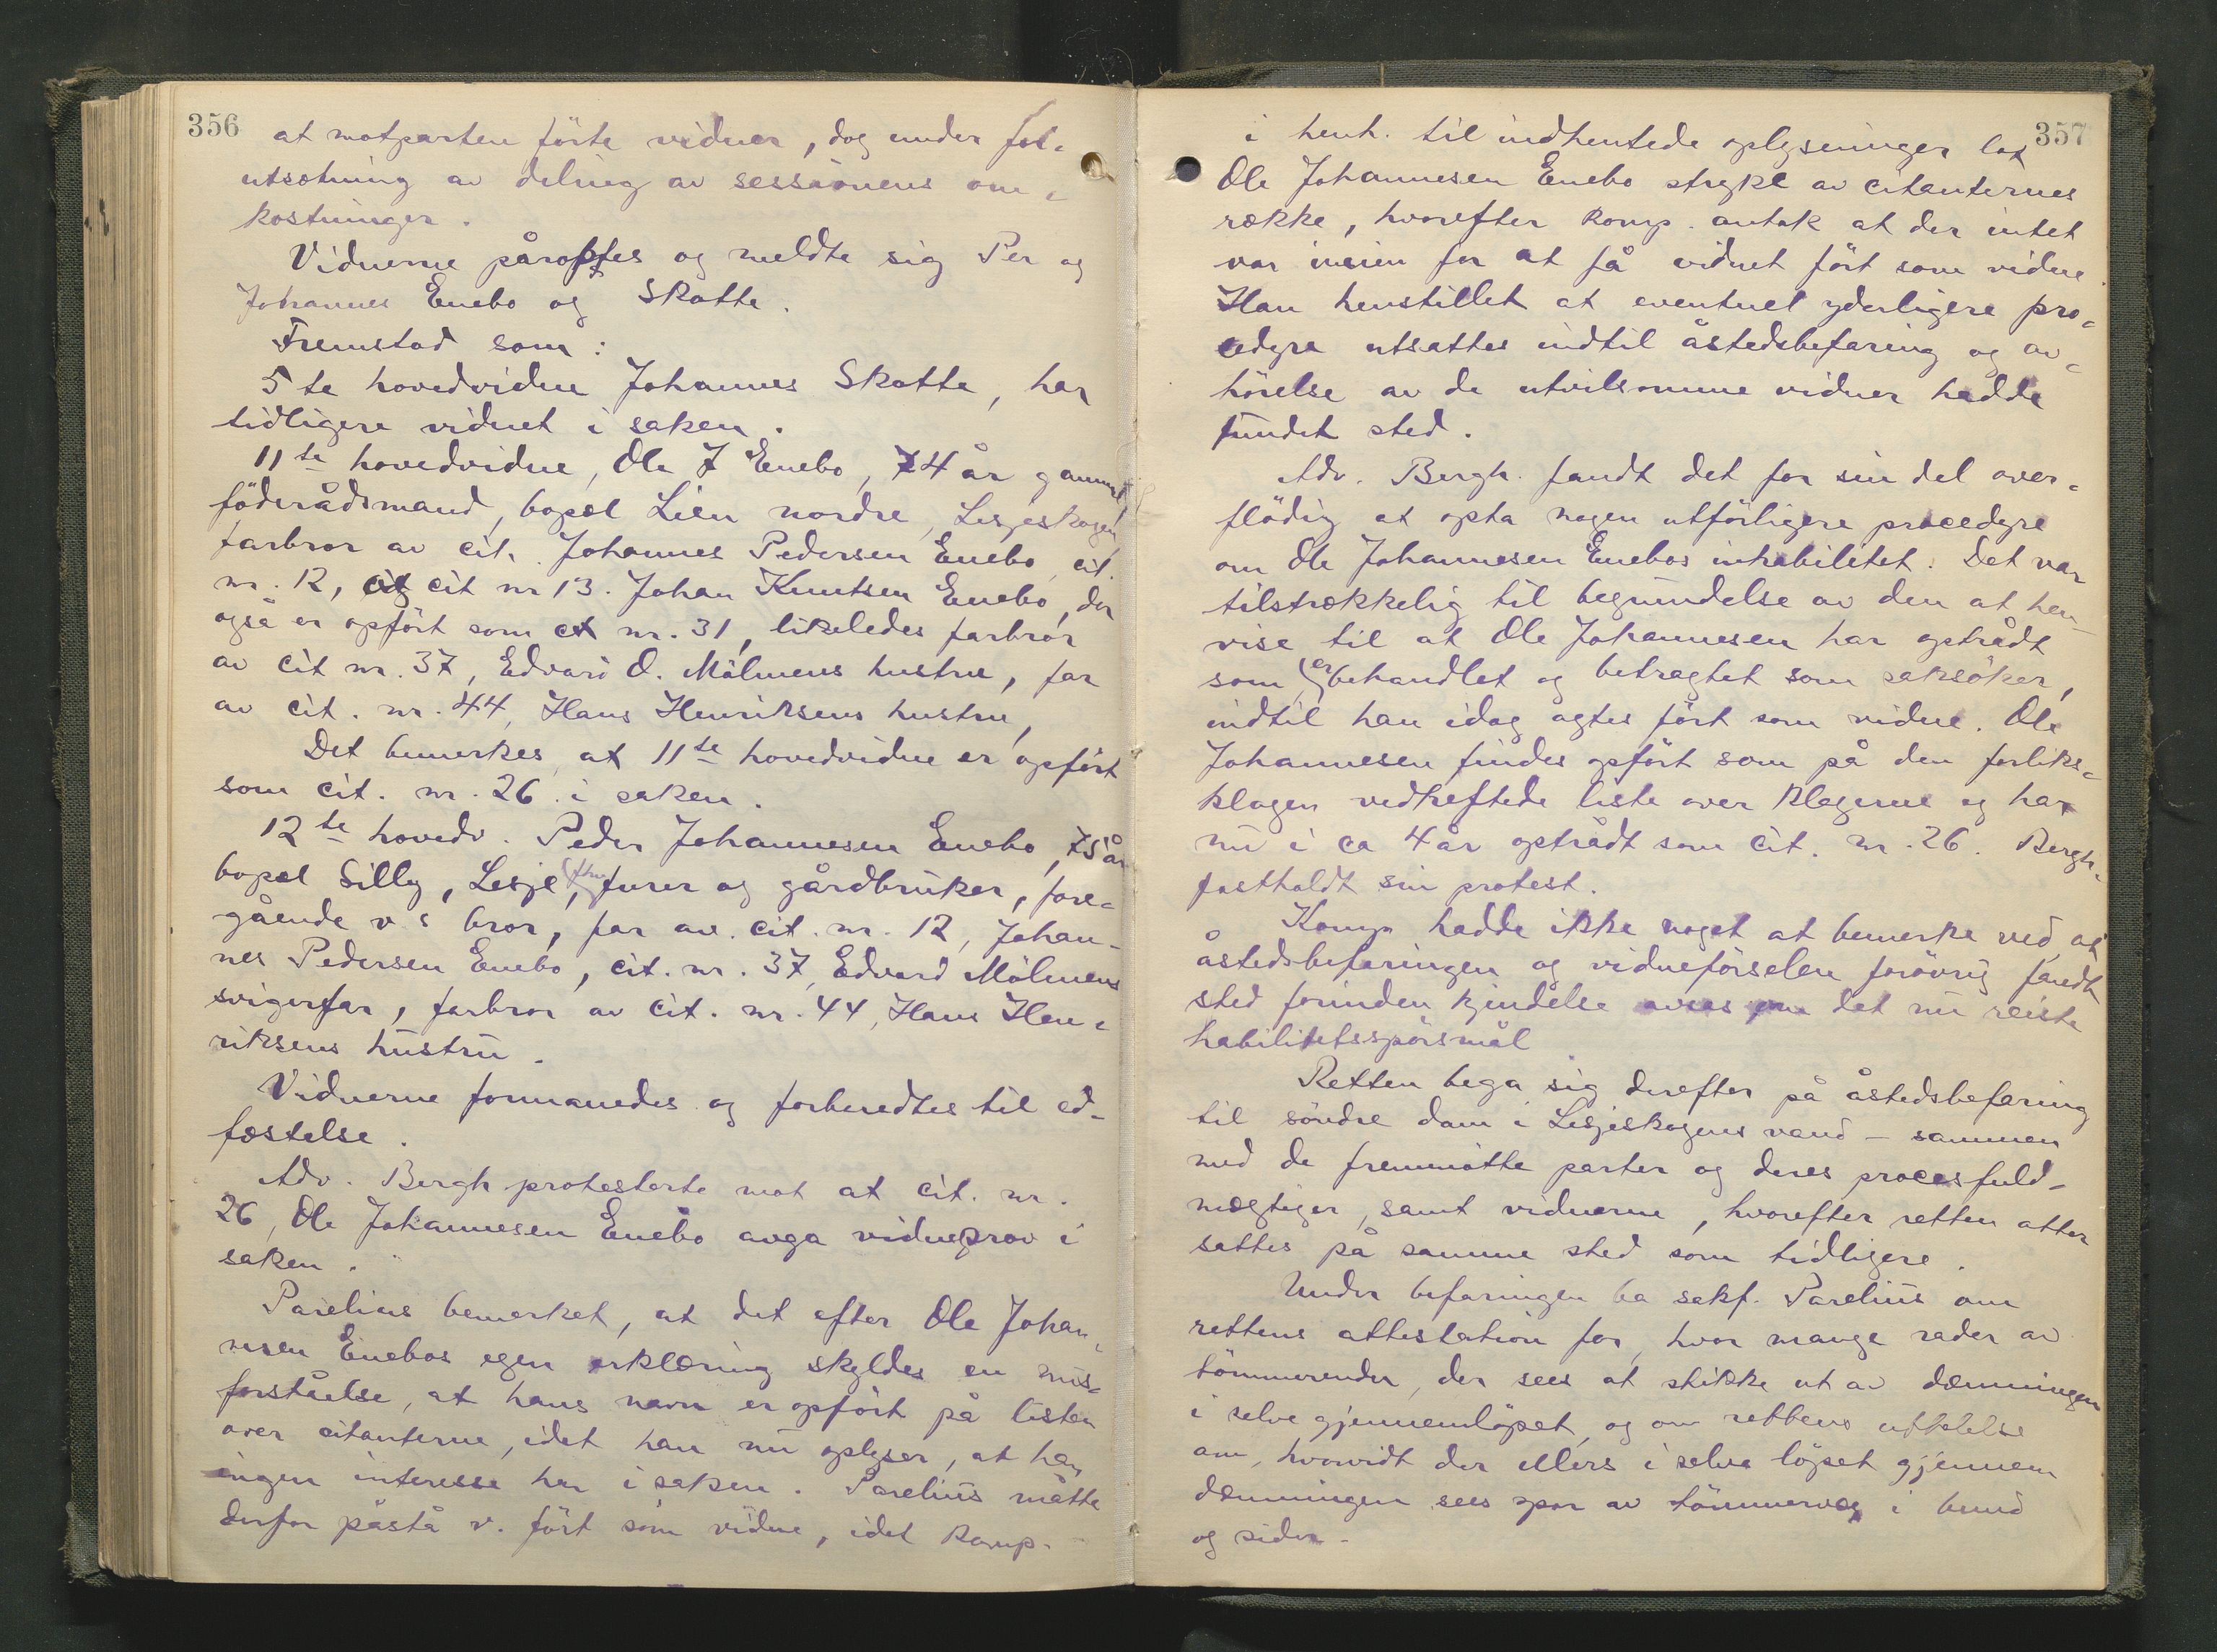 356
at motparten förte vidner, dog under for-
utsætning av deling av sessionens om-
kostninger.
Vidnerne påroptes og meldte sig Per og
Johannes Enebo og Skotte.
Fremstod som:
5te hovedvidne Johannes Skotte, har
tidligere vidnet i saken.
11te hovedvidne, Ole J Enebo, 74 år gammel
föderådsmand, bopæl Lien nordre, Lesjeskogen
farbror av cit. Johannes Pedersen Enebo, cit.
nr. 12, og cit nr 13. Johan Knutsen Enebo, der
også er opfört som cit nr. 31, likeledes farbror
av cit nr. 37, Edvard O. Mölmens hustru, far
av cit. nr. 44, Hans Henriksens hustru,
Det bemerkes, at 11te hovedvidne er opfört
som cit. nr. 26 i saken.
12te hovedv. Peder Johannesen Enebo, 75 år
bopæl Silly, Lesje, furer og gårdbruker, fore-
gående v s bror, far av. cit. nr. 12, Johan-
nes Pedersen Enebo, cit. nr. 37, Edvard Mölmens
svigerfar, farbror av cit. nr. 44, Hans Hen-
riksens hustru.
Vidnerne formanedes og forberedtes til ed-
fæstelse.
Adv. Bergh protesterte mot at cit. nr.
26, Ole Johannesen Enebo avga vidneprov i
saken.
Parelius bemerket, at det efter Ole Johan-
nesen Enebos egen erklæring skyldes en mis-
forståelse, at hans navn er opfört på listen
over citanterne, idet han nu oplyser, at han
ingen interesse har i saken. Parelius måtte
derfor påstå v. fört som vidne, idet komp.
357
i henh. til indhentede oplysninger lot
Ole Johannesen Enebo stryke av citanternes
række, hvorefter komp. antok at der intet
var iveien for at få vidnet fört som vidne
Han henstillet at eventuel yderligere pro-
cedyre utsattes indtil åstedsbefaring og av-
hörelse av de utvilsomme vidner hadde
fundet sted.
Adv. Bergh. fandt det for sin del over-
flödig at opta nogen utförligere procedyre
om Ole Johannesen Enebos inhabilitet. Det var
tilstrækkelig til begrundelse av den at hen-
vise til at Ole Johannesen har optrådt
som, er behandlet og betragtet som saksöker,
indtil han idag agtes fört som vidne. Ole
Johannesen findes opfört som på den forliks-
klagen vedheftede liste over klagerne og har
nu i ca 4 år optrådt som cit. nr. 26. Bergh.
fastholdt sin protest.
Komp. hadde ikke noget at bemerke ved, at
åstedsbefaringen og vidneförselen forövrig fandt
sted forinden kjendelse avsas om det nu reiste
habilitetsspörsmål
Retten bega sig derefter på åstedsbefaring
til söndre dam i Lesjeskogens vand – sammen
med de fremmötte parter og deres procesfuld-
mægtiger, samt vidnerne, hvorefter retten atter
sattes på samme sted som tidligere.
Under befaringen ba sakf. Parelius om
rettens attestation for, hvor mange rader av
tömmerender, der sees at stikke ut av dæmningen
i selve gjennemlöpet, og om rettens uttalelse
om, hvorvidt der ellers i selve löpet gjennem
dæmningen sees spor av tömmerveg i bund
og sider.